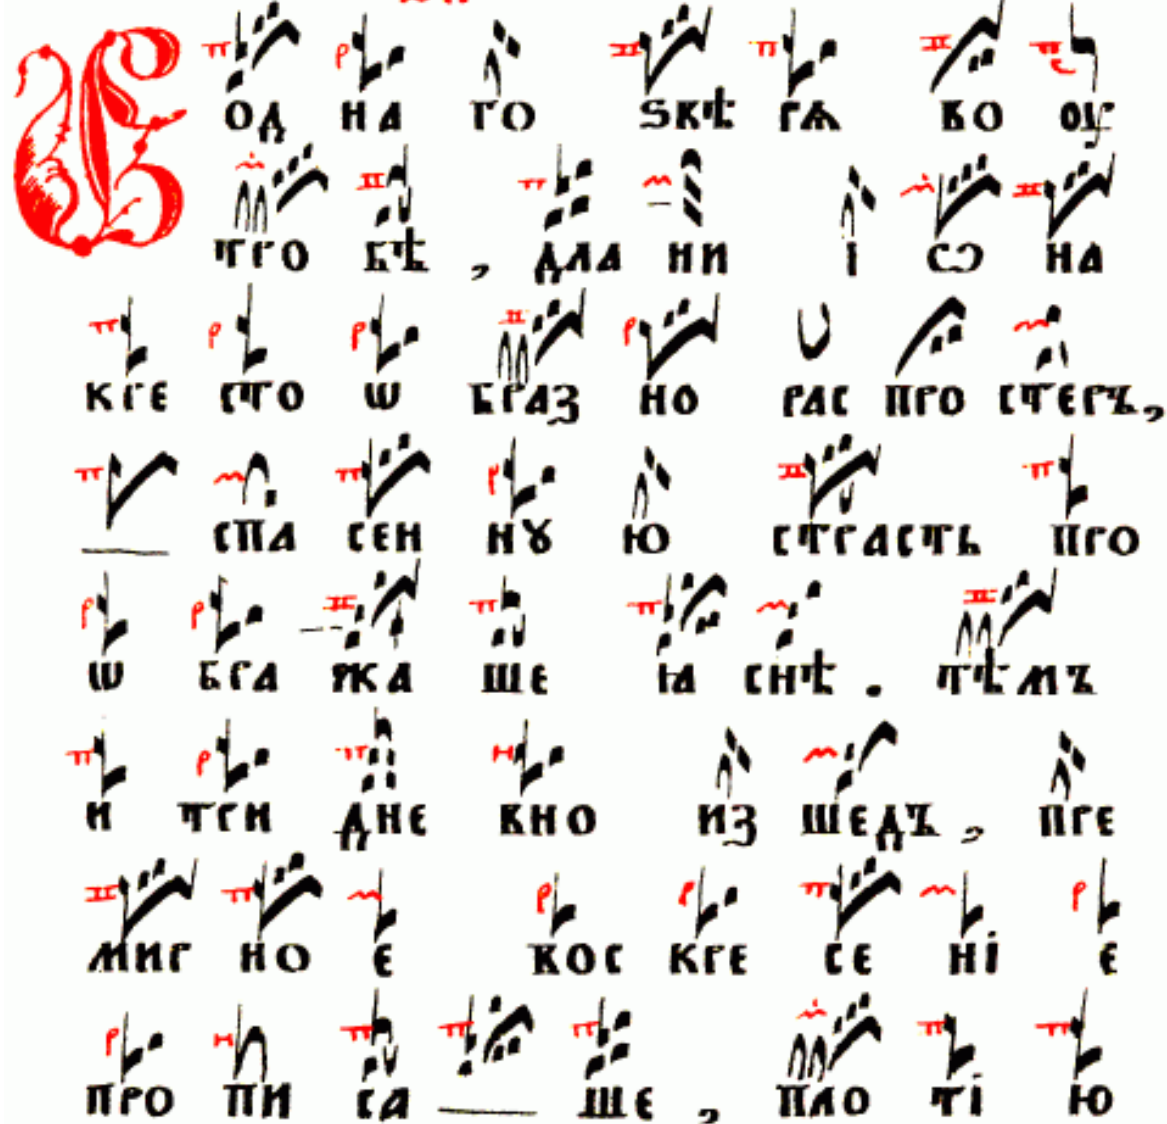 В ОД НА ГО ЅВѢ РѦ ВО ОУ
ТРО БѢ , ДЛА НИ І СѺ НА
КРЕ СТО Ѡ БРАЗ НО РАС ПРО СТЕРЪ,
СПА СЕН НꙊ Ю СТРАСТЬ ПРО
Ѡ БРА ЖА ШЕ Ꙗ СНѢ . ТѢМЪ
И ТРИ ДНЕ ВНО ИЗ ШЕДЪ , ПРЕ
МИР НО Е ВОС КРЕ СЕ НІ Е
ПРО ПИ СА ШЕ , ПЛО ТІ Ю